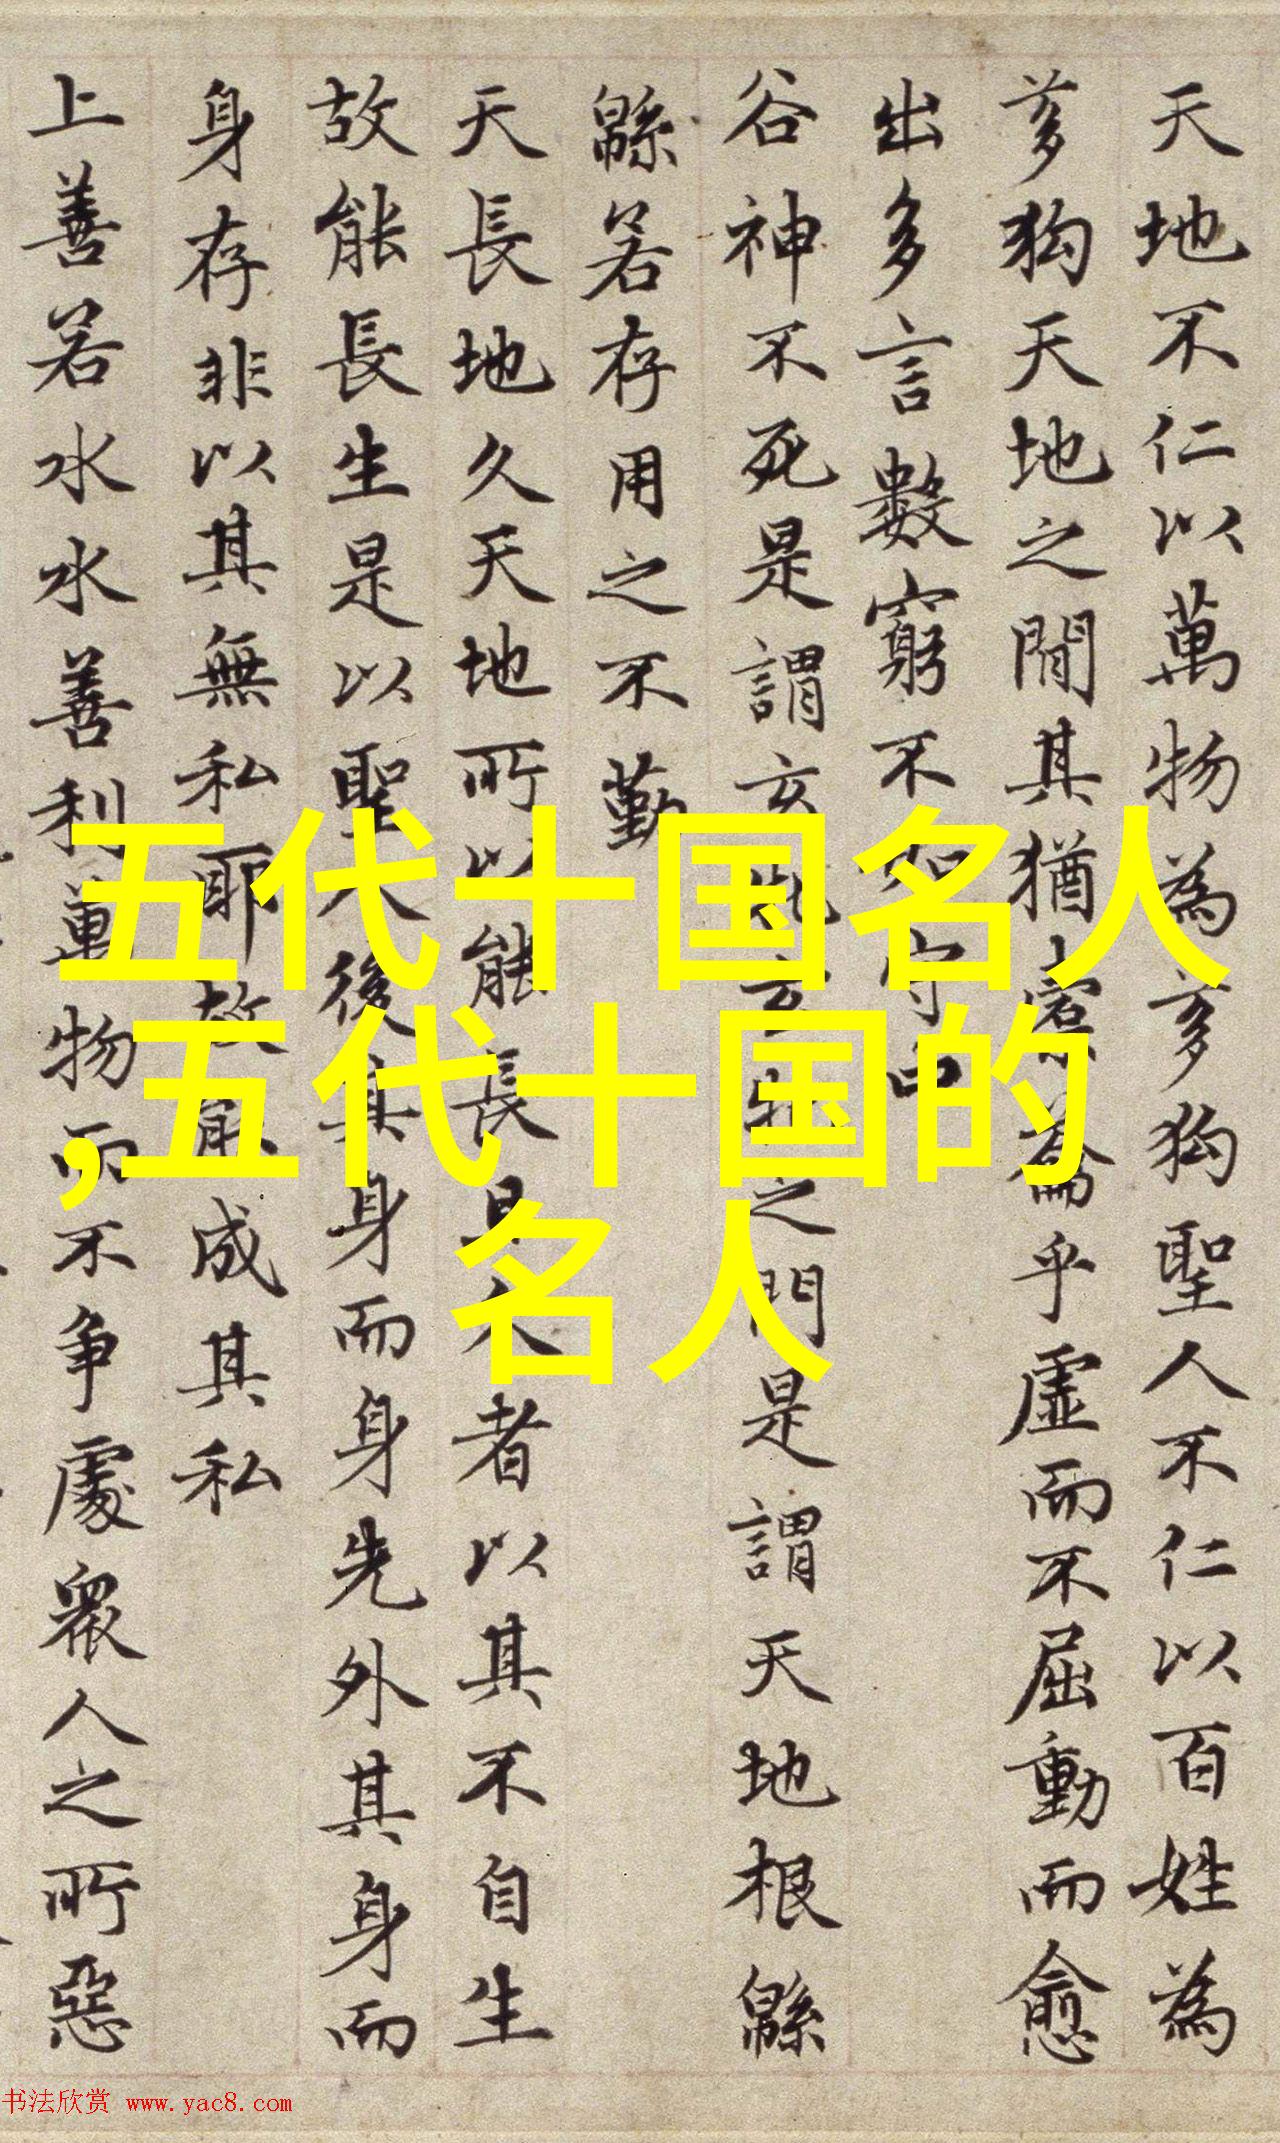 天地不仁以萬物為芻狗聖人不仁以百姓為
芻狗天地之間其猶橐籥乎虛而不屈動而愈
出多言數窮不如守中
谷神不死是謂玄牝玄牝之門是謂天地根緜
緜若存用之不勤
天長地久天地所以能長且久者以其不自生
故能長生是以聖人後其身而身先外其身而
身存非以其無私耶故能成其私
上善若水水善利萬物而不争處衆人之所惡
五代十国名人
,五代十国的
名人
书法欣赏 www.yac8.com